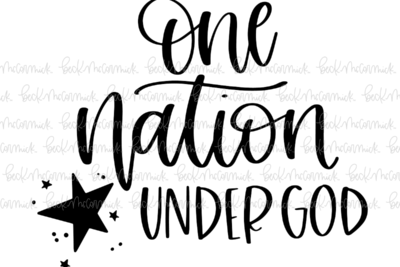 One
nation
UNDER GOD